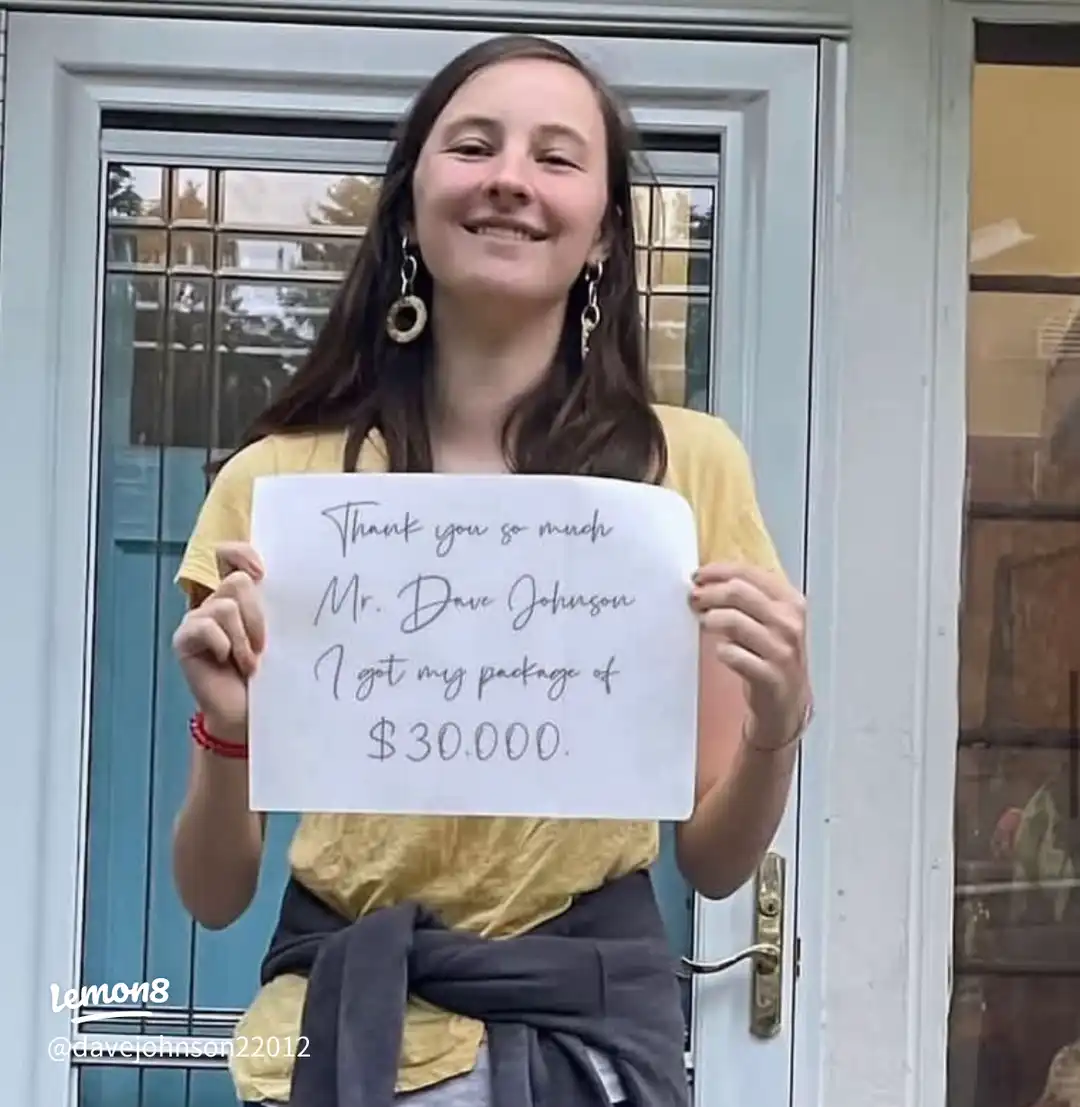 Thank you so much
Mr. Dave Johnson
I got my package of
$30.000.
lemon8
@davejohnson22012